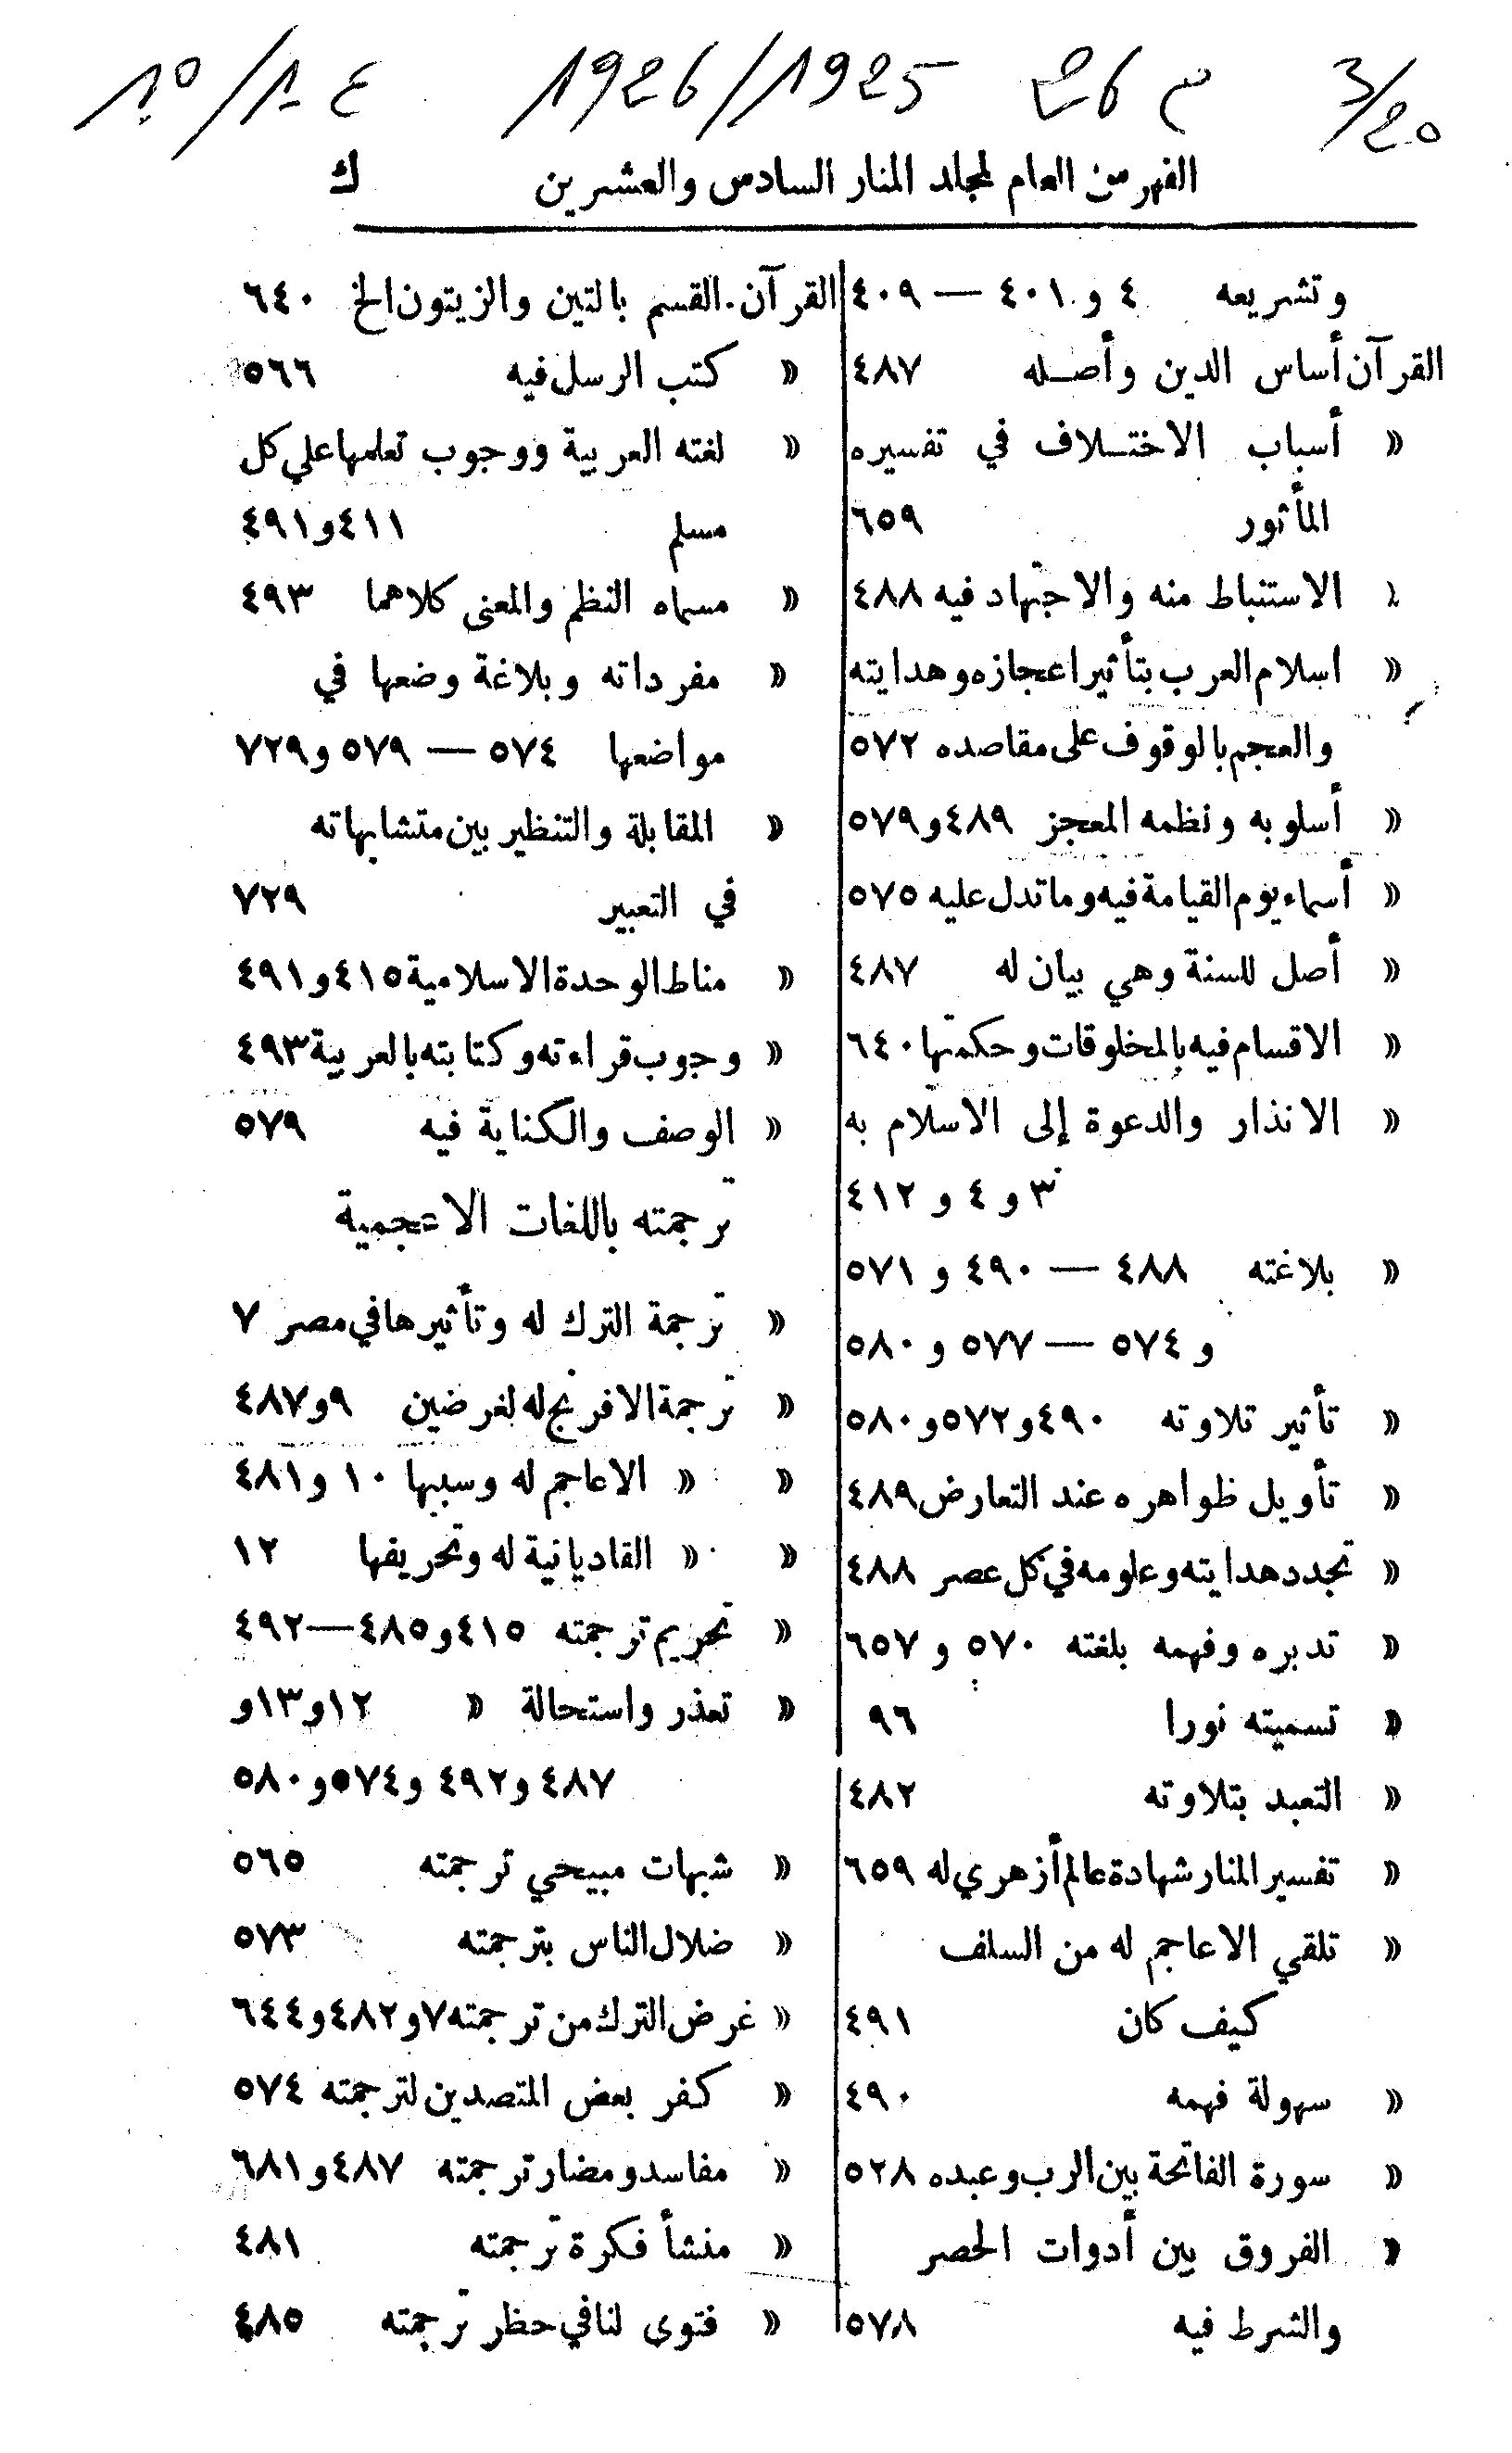 3/20 م 26 1926/1925 ع 1-/10
الفهرس العام لمجلد المنار السادس والعشرين ك
وتشريعه ٤ و ٤٠١ — ٤٠٩
القرآن أساس الدين وأصله ٤٨٧
« أسباب الاختلاف في تفسيره
المأثور ٦٥٩
« الاستنباط منه والاجتهاد فيه ٤٨٨
« اسلام العرب بتأثير اعجازه وهدايته
والعجم بالوقوف على مقاصده ٥٧٢
« أسلوبه ونظمه المعجز ٤٨٩ و ٥٧٩
« أسماء يوم القيامة فيه وما تدل عليه ٥٧٥
« أصل للسنة وهي بيان له ٤٨٧
« الاقسام فيه بالمخلوقات وحكمتها ٦٤٠
« الانذار والدعوة إلى الاسلام به
٣ و ٤ و ٤١٢
« بلاغته ٤٨٨ — ٤٩٠ و ٥٧١
و ٥٧٤ — ٥٧٧ و ٥٨٠
« تأثير تلاوته ٤٩٠ و ٥٧٢ و ٥٨٠
« تأويل ظواهره عند التعارض ٤٨٩
« تجدد هدايته وعلومه في كل عصر ٤٨٨
« تدبره وفهمه بلغته ٥٧٠ و ٦٥٧
« تسميته نورا ٩٦
« التعبد بتلاوته ٤٨٢
« تفسير المنار شهادة عالم أزهري له ٦٥٩
« تلقي الاعاجم له من السلف
كيف كان ٤٩١
« سهولة فهمه ٤٩٠
« سورة الفاتحة بين الرب وعبده ٥٢٨
« الفروق بين أدوات الحصر
والشرط فيه ٥٧٨
القرآن. القسم بالتين والزيتون الخ ٦٤٠
« كتب الرسل فيه ٥٦٦
« لغته العربية ووجوب تعلمها على كل
مسلم ٤١١ و ٤٩١
« مسماه النظم والمعنى كلاهما ٤٩٣
« مفرداته وبلاغة وضعها في
مواضعها ٥٧٤ — ٥٧٩ و ٧٢٩
« المقابلة والتنظير بين متشابهاته
في التعبير ٧٢٩
« مناط الوحدة الاسلامية ٤١٥ و ٤٩١
« وجوب قراءته وكتابته بالعربية ٤٩٣
« الوصف والكناية فيه ٥٧٩
ترجمته باللغات الاعجمية
« ترجمة الترك له وتأثيرها في مصر ٧
« ترجمة الافرنج له لغرضين ٩ و ٤٨٧
« « الاعاجم له وسببها ١٠ و ٤٨١
« « القاديانية له وتحريفها ١٢
« تحريم ترجمته ٤١٥ و ٤٨٥ — ٤٩٢
« تعذر واستحالة « ١٢ و ١٣ و
٤٨٧ و ٤٩٢ و ٥٧٤ و ٥٨٠
« شبهات مبيحي ترجمته ٥٦٥
« ضلال الناس بترجمته ٥٧٣
« غرض الترك من ترجمته ٧ و ٤٨٢ و ٦٤٤
« كفر بعض المتصدين لترجمته ٥٧٤
« مفاسد ومضار ترجمته ٤٨٧ و ٦٨١
« منشأ فكرة ترجمته ٤٨١
« فتوى لنا في حظر ترجمته ٤٨٥